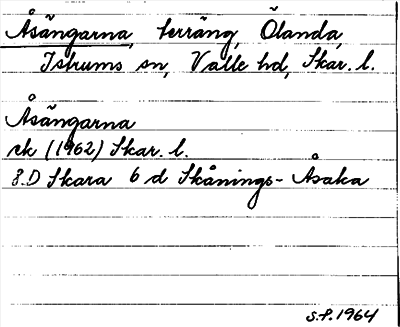 Åsängarna, terräng, Ölanda,
Istrums sn, Valle hd, Skar. l.
Åsängarna
ek (1962) Skar. l.
8.D Skara 6 d Skånings-Åsaka
S.P. 1964